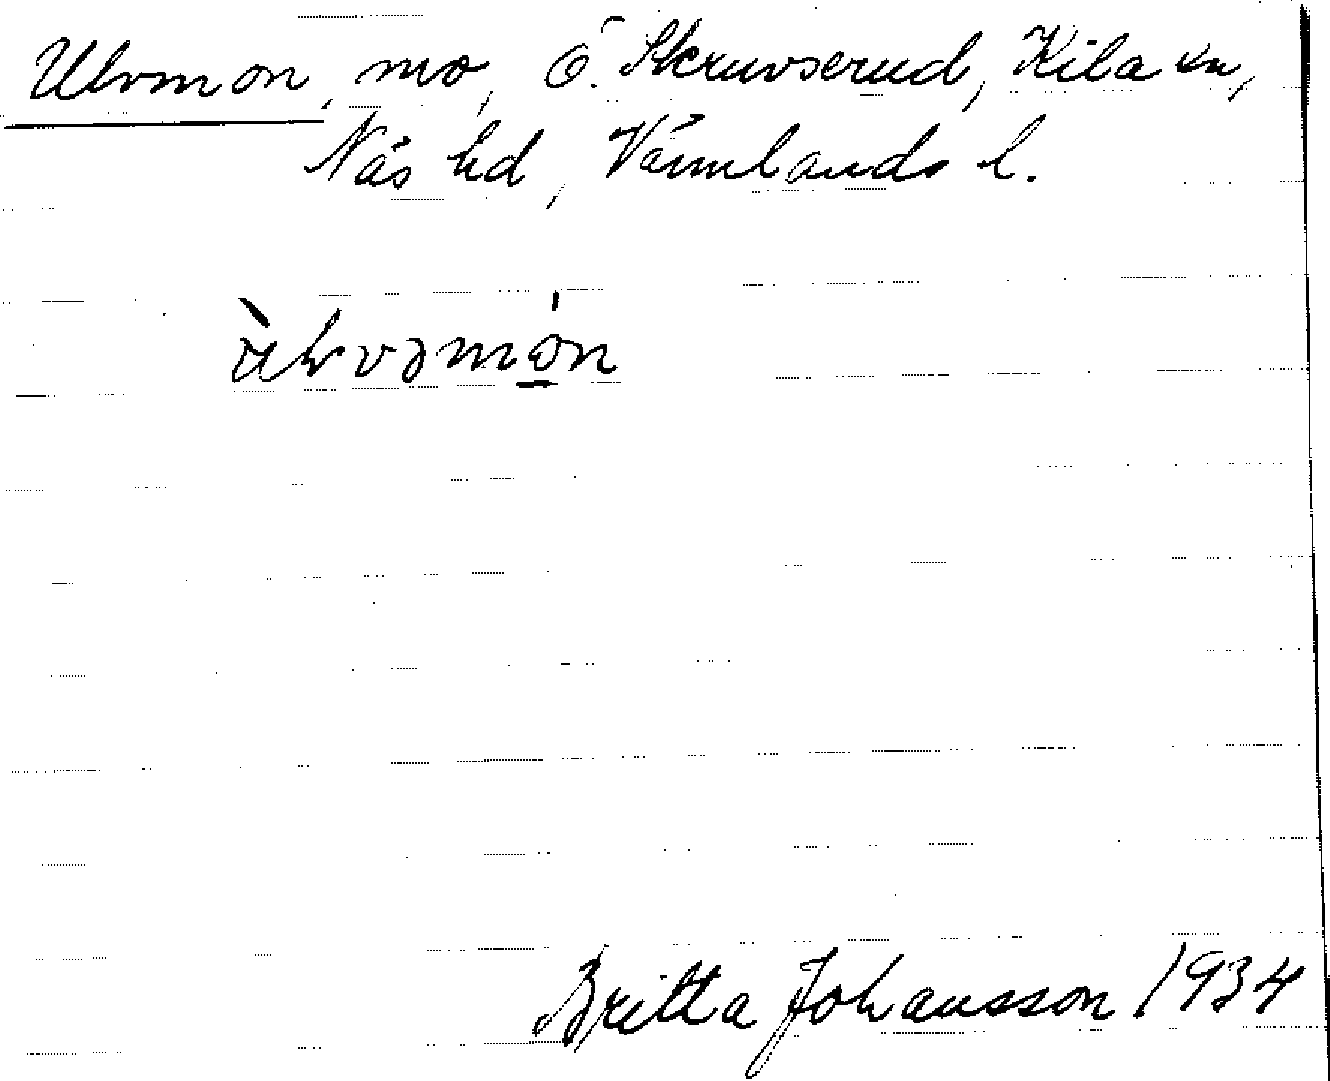 Ulvmon, mo, Ö. Skruvserud, Kila sn,
Näs hd, Värmlands l.
Britta Johansson 1934